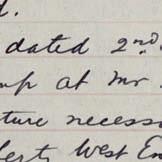 d.
dated 2nd
mp at Mr
ture necess
berty West E